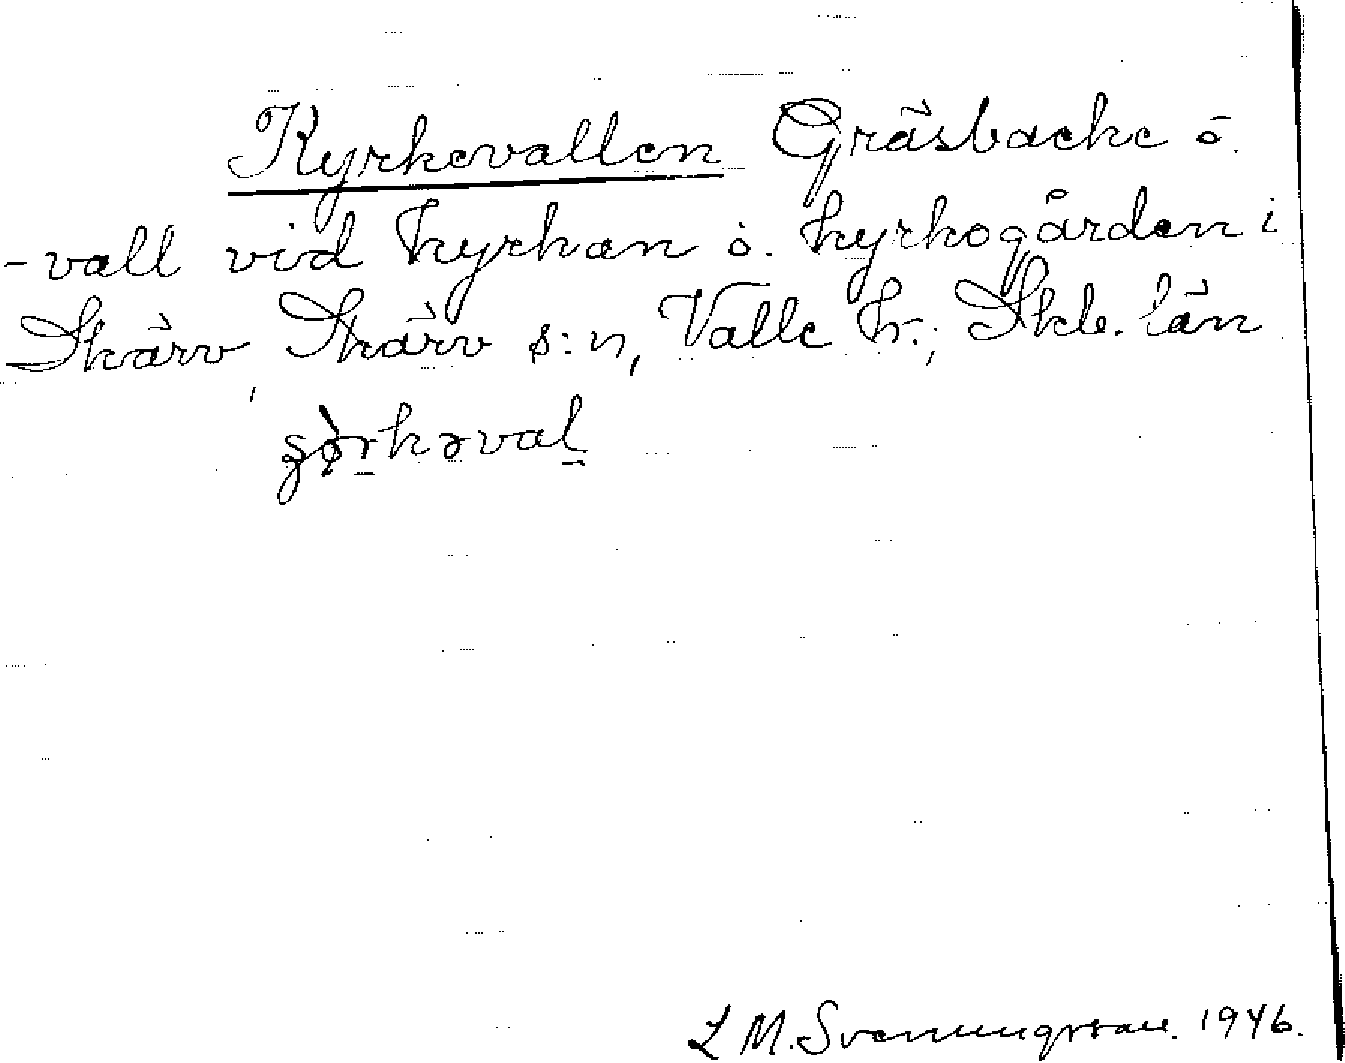 Kyrkevallen Gräsbacke o.
-vall vid kyrkan o. kyrkogården i
Skärv, Skärv s:n, Valle h., Skb. län
L M. Svenungsson. 1946.